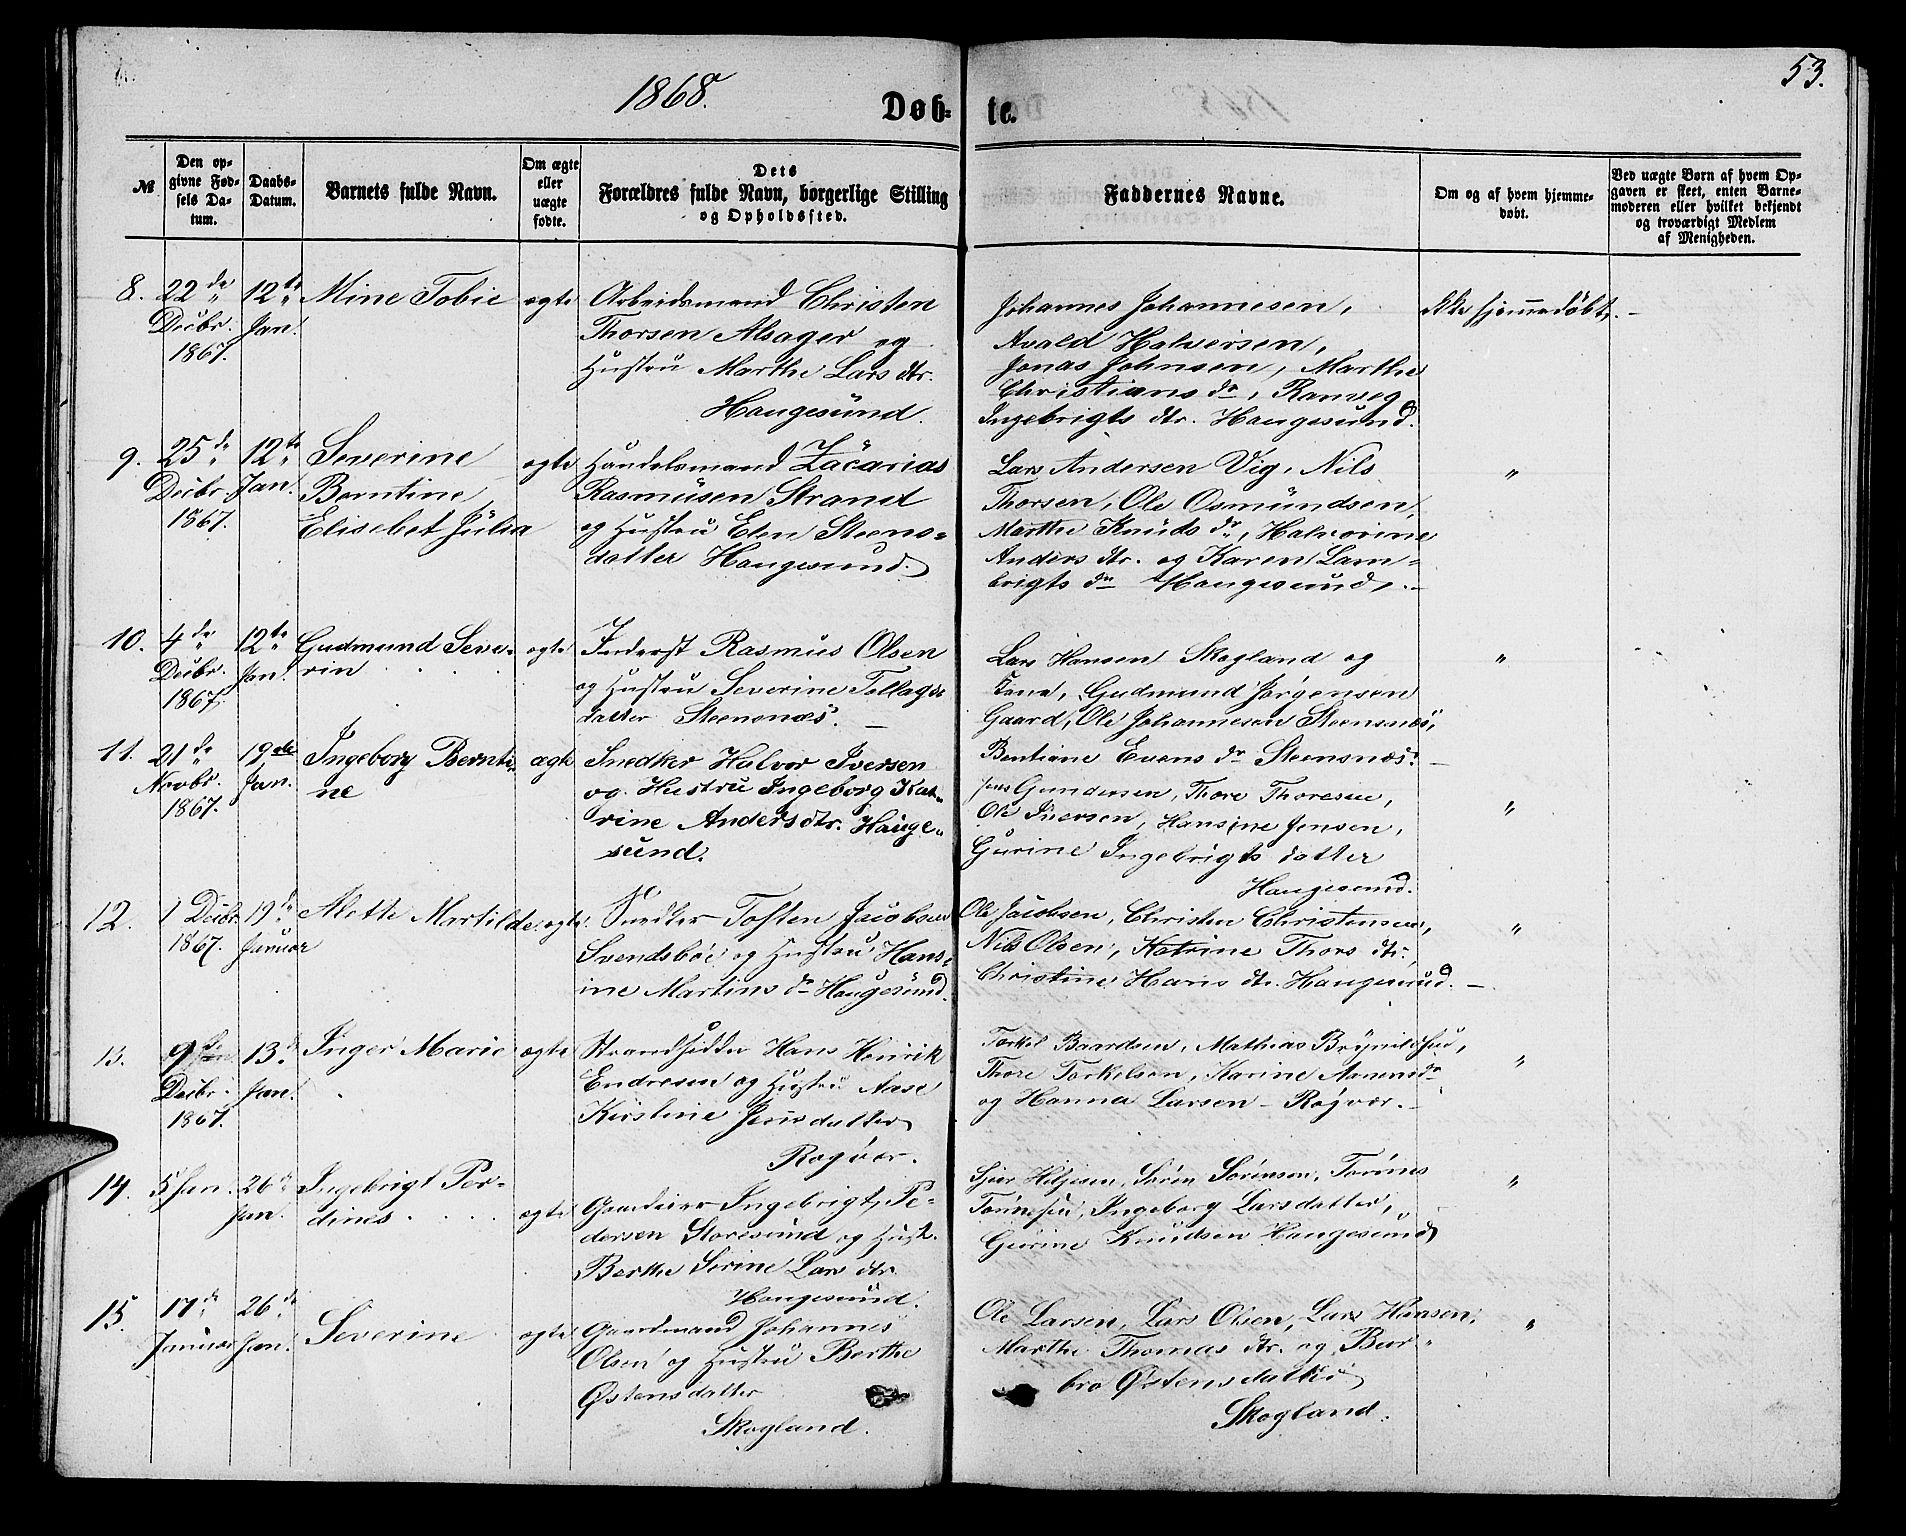 1868.
53.
Døb-
te.
№
Den op-
givne Fød-
sels Da-
tum.
Daabs-
Datum.
Barnets fulde Navn.
Om ægte
eller
uægte
fødte.
Dets
Forældres fulde Navn, borgerlige Stilling
og Opholdssted.
Faddernes Navne.
Om og af hvem hjemme-
døbt.
Ved uægte Børn af hvem Op-
gaven er skeet, enten Barne-
moderen eller hvilket bekjendt
og troværdigt Medlem
af Menigheden.
8.
22de
Decbr.
1867.
12te
Jan.
Mine Tobie
ægte
Arbeidsmand Christen
Thorsen Alsager og
Hustru Marthe Lars dtr.
Haugesund.
Johannes Johannesen,
Avald Halversen,
Jonas Johnsen, Marthe
Christians dr, Ranveg
Ingebrigts dtr. Haugesund.
ikke hjemmedøbt.
9.
25de
Decbr.
1867.
12te
Jan.
Severine
Berntine
Elisebet Julia
ægte
Handelsmand Zacarias
Rasmusen Strand
og Hustru Elen Steens=
datter Haugesund.
Lars Andersen Vig, Nils
Thorsen, Ole Osmundsen,
Marthe Knuds dr, Halvorine
Anders dtr. og Karen Lam=
brigts dr Haugesund.
"
10.
4de
Decbr.
1867.
12te
Jan.
Gudmund Seve-
rin
ægte
Inderst Rasmus Olsen
og Hustru Severine Tollags
datter Steensnæs.
Lars Hansen Skogland og
Kone, Gudmund Jørgensen
Gaard, Ole Johannesen Steensnæs,
Bentiane Evens dr Steensnæs.
"
11.
21de
Novbr.
1867.
19de
Jan.
Ingeborg Bernti=
ne
ægte
Snedker Halvor Iversen
og Hustru Ingeborg Kat=
rine Andersdtr. Hauge=
sund.
Jens Gundersen, Thore Thoresen,
Ole Iversen, Hansine Jensen,
Gurine Ingebrigts datter
Haugesund.
"
12.
1 Decbr.
1867.
19de
Januar
Alette Martilde
ægte
Snedker Tosten Jacobsen
Svendsbøe og Hustru Hans=
ine Martins dr Haugesund.
Ole Jacobsen, Christen Christensen,
Nils Olsen, Katrine Thors dtr.,
Christine Hans dtr. Haugesund.
"
13.
9de
Decbr.
1867.
13de
Jan.
Inger Marie
ægte
Strandsidder Hans Henrik
Endresen og Hustru Aase
Kirstine Jensdatter
Røgvær.
Torkel Baardsen, Mathias Brynildsen,
Thore Torkelsen, Karine
og Hanna Larsen - Røgvær.
"
14.
5 Jan.
26de
Jan.
Ingebrigt Per=
dines
ægte
Gaardeier Ingebrigt Pe=
dersen Storesund og Hust.
Berthe Serine Lars dtr.
Haugesund.
Søren Sørensen, Tønnes
Tønnesen, Ingeborg Larsdatter,
Gurine Knudsen Haugesund
"
15.
17de
Januar
26de
Jan.
Severine
ægte
Gaardmand Johannes
Olsen og Hustru Berthe
Østensdatter
Skogland.
Ole Larsen, Lars Olsen, Lars Hansen,
Marthe Thomas dtr. og Bar=
bro Østensdatter
Skogland.
"